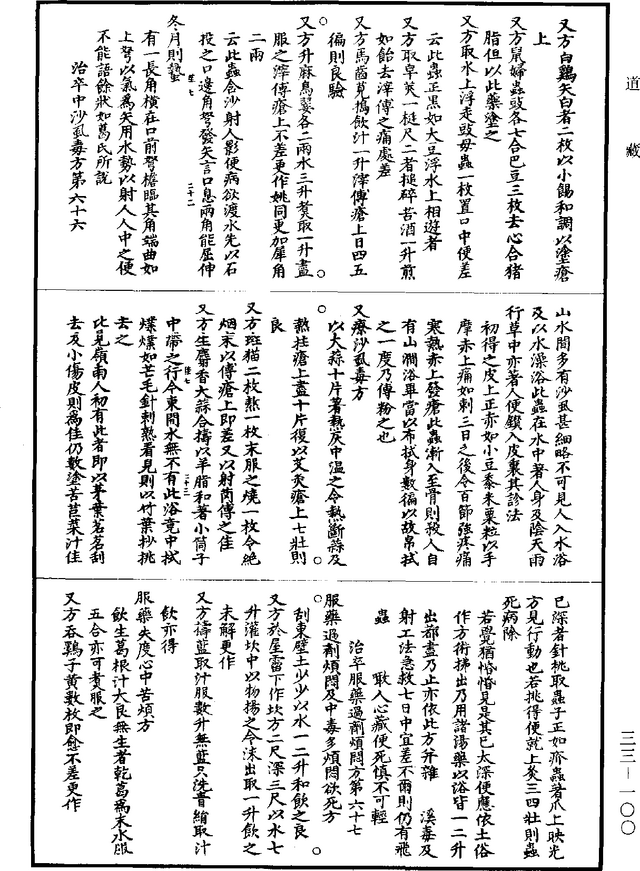 道藏
又方白鷄矢白者二枚以小餳和調以塗瘡
上
又方鼠婦蟲豉各七合巴豆三枚去心合猪
脂但以此藥塗之
又方取水上浮走豉母蟲一枚置口中便差
云此蟲正黑如大豆浮水上相遊者
又方取皁莢一梃尺二者搥碎苦酒一升煎
如飴去滓傅之痛處差
又方馬齒莧擣飲汁一升滓傅瘡上日四五
徧則良驗
又方升麻鳥翣各二兩水三升煑取一升盡
服之滓傅瘡上不差更作姚同更加犀角
二兩
云此蟲含沙射人影便病欲渡水先以石
投之口邊角弩發矢言口息兩角能屈伸
冬月則蟄
有一長角橫在口前弩檐臨其角端曲如
上弩以氣爲矢用水勢以射人人中之便
不能語餘狀如葛氏所説
治卒中沙虱毒方第六十六
山水間多有沙虱甚細略不可見人入水浴
及以水澡浴此蟲在水中著人身及陰天雨
行草中亦著人便鑽入皮裏其診法
初得之皮上正赤如小豆黍米粟粒以手
摩赤上痛如刺三日之後令百節強疼痛
寒熱赤上發瘡此蟲漸入至骨則殺人自
有山澗浴畢當以布拭身數徧以故帛拭
之一度乃傅粉之也
又療沙虱毒方
以大蒜十片著熱灰中溫之令熱斷蒜及
熱拄瘡上盡十片復以艾灸瘡上七壯則
良
又方斑猫二枚熬一枚末服之燒一枚令絶
烟末以傅瘡上即差又以射䒷傅之佳
又方生麝香大蒜合擣以羊脂和著小筒子
中帶之行今東間水無不有此浴竟中拭
煠煠如芒毛針刺熟看見則以竹葉抄挑
去之
比見嶺南人初有此者即以茅葉茗茗刮
去及小傷皮則爲佳仍數塗苦苣菜汁佳
已深者針挑取蟲子正如疥蟲著爪上映光
方見行動也若挑得便就上灸三四壯則蟲
死病除
若覺猶惛惛見是其已太深便應依土俗
作方術拂出乃用諸湯藥以浴皆一二升
出都盡乃止亦依此方并雜　溪毒及
射工法急救七日中宜差不爾則仍有飛
蟲　敢人心藏便死慎不可輕
治卒服藥過劑煩悶方第六十七
服藥過劑煩悶及中毒多煩悶欲死方
刮東壁土少少以水一二升和飲之良
又方於屋霤下作坎方二尺深三尺以水七
升灌坎中以物揚之令沫出取一升飲之
未解更作
又方擣藍取汁服數升無藍只洗青絹取汁
飲亦得
服藥失度心中苦煩方
飲生葛根汁大良無生者乾葛爲末水服
五合亦可煑服之
又方吞鷄子黃數枚即愈不差更作
三三—一〇〇